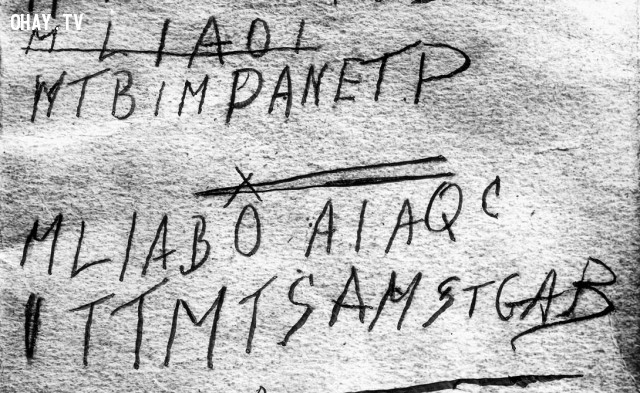 OHAY.TV
MLIAOI
WTBIMPANETP
MLIABO AIAQC
ITTMTSAMSTGAB